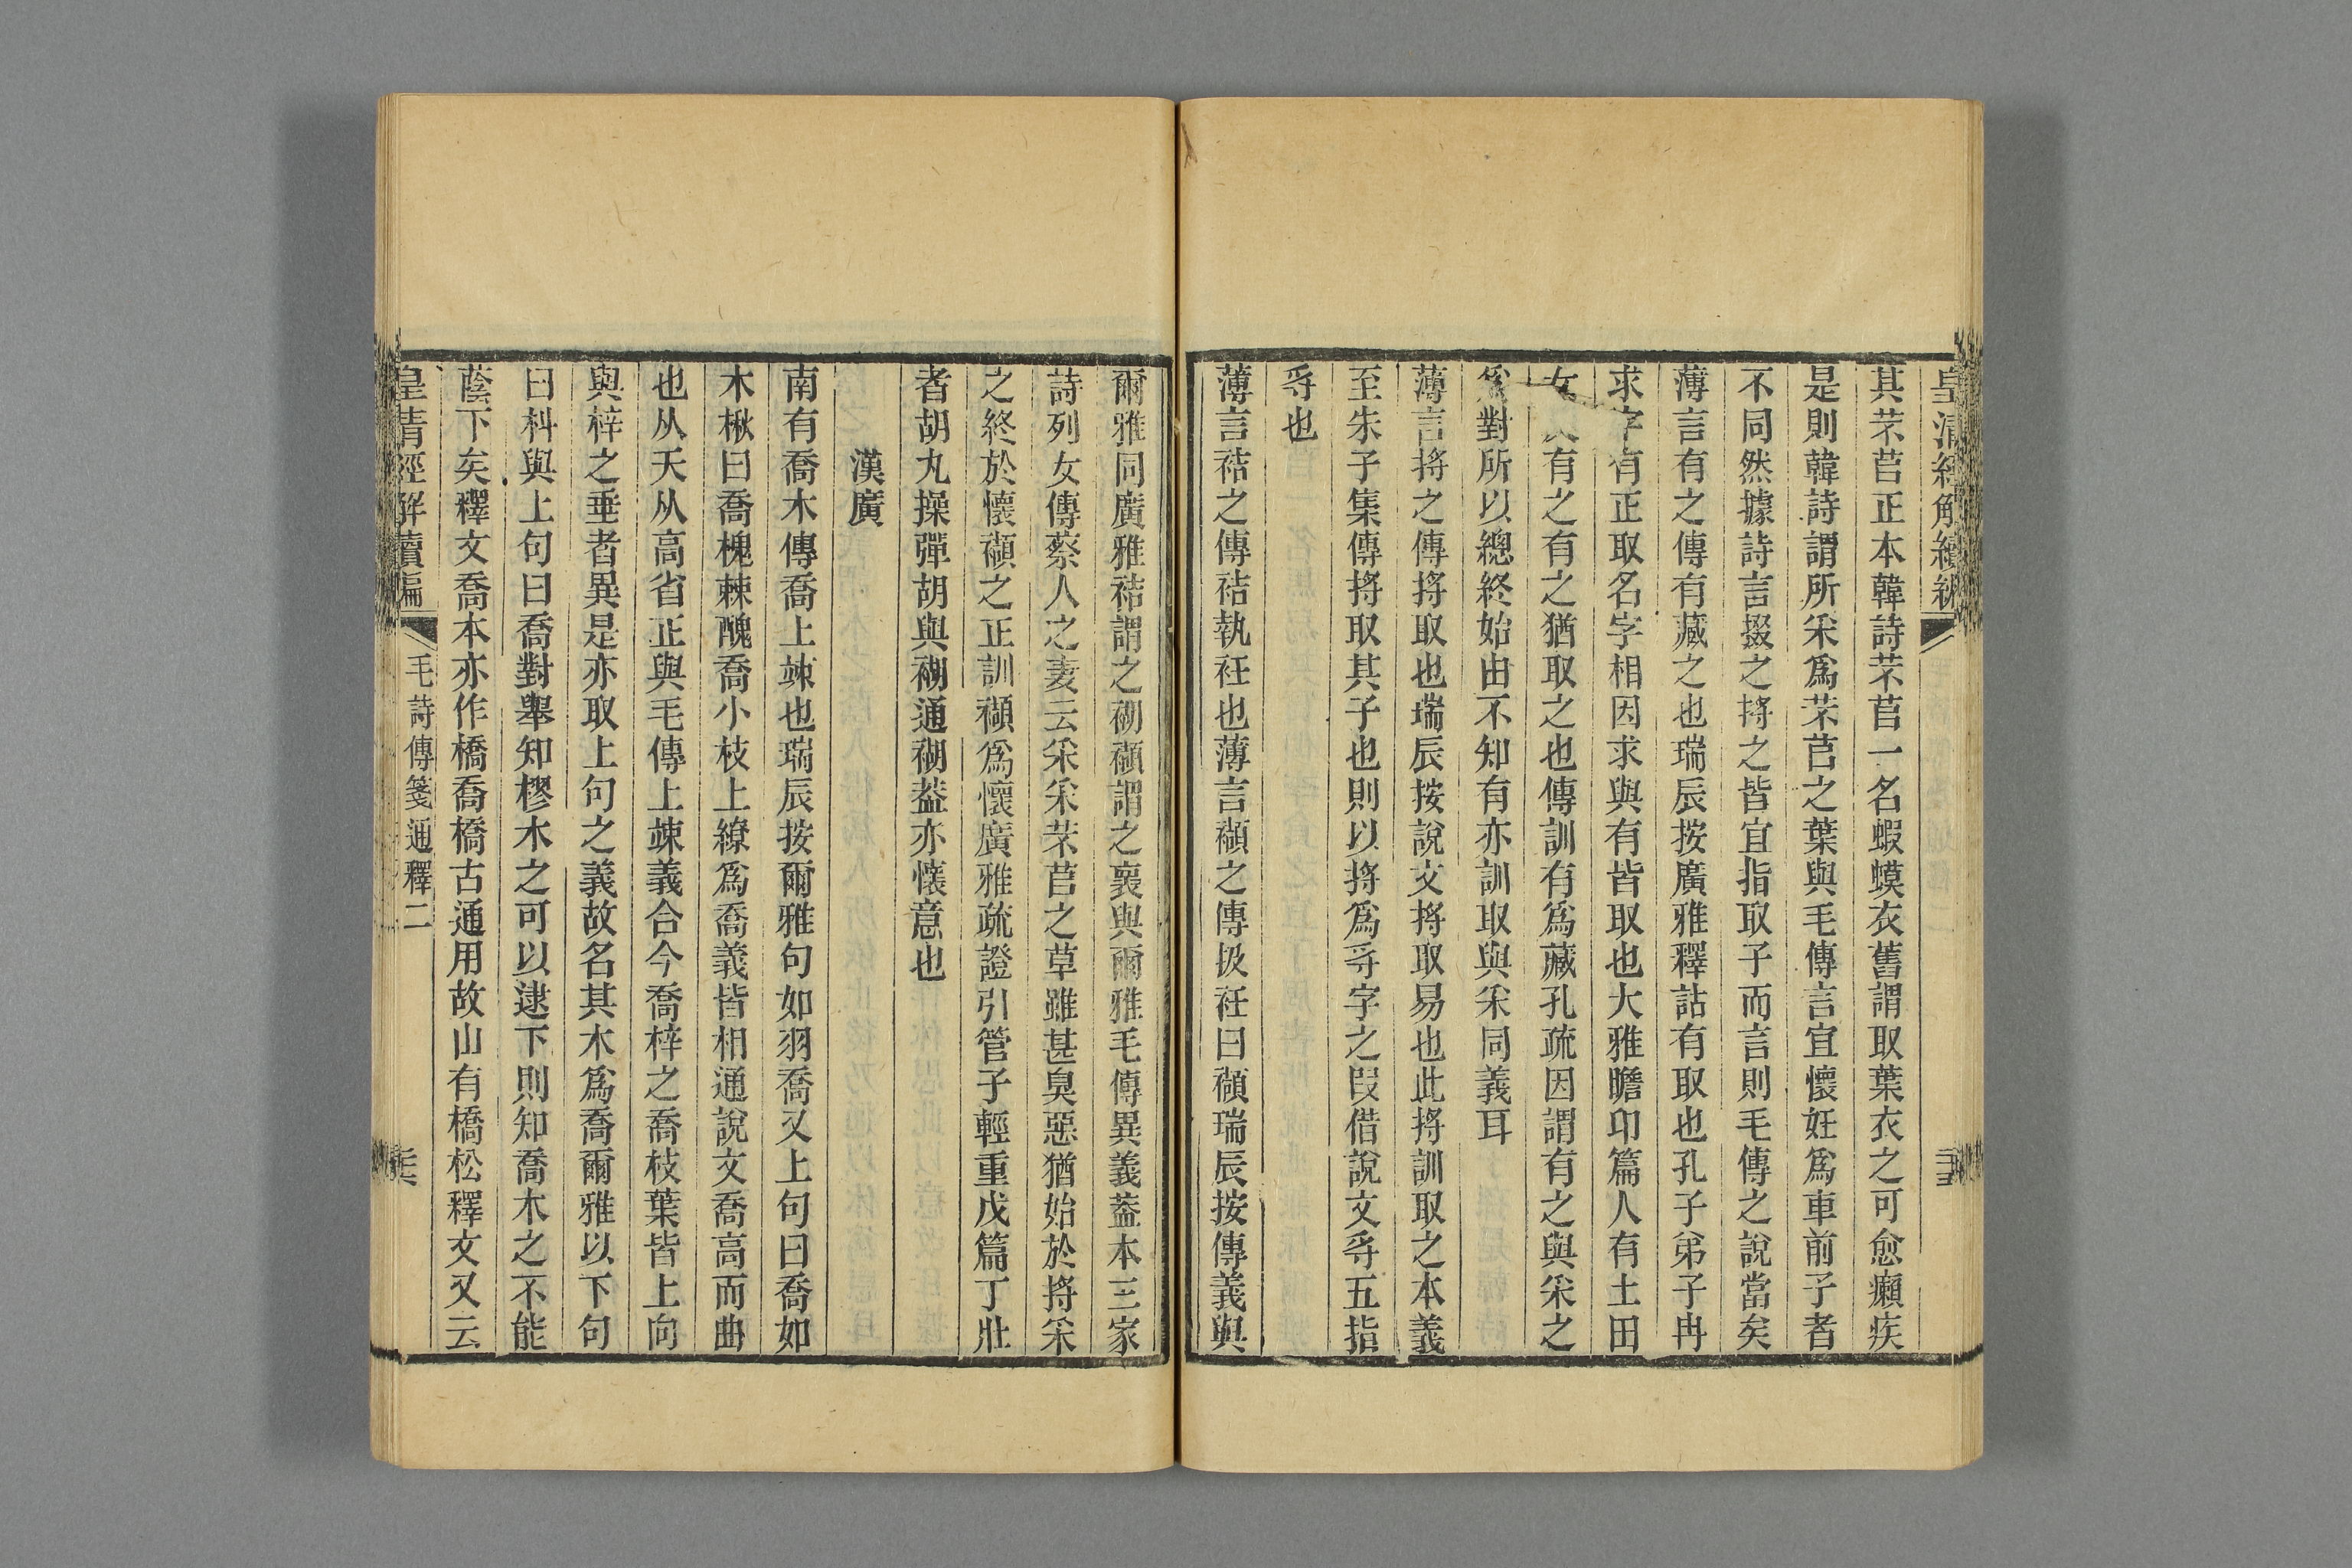 皇清經解續編
其芣苢正本韓詩芣苢一名蝦蟆衣舊謂取葉衣之可愈癩疾
是則韓詩謂所采爲芣苢之葉與毛傳言宜懷妊爲車前子者
不同然據詩言掇之捋之皆宜指取子而言則毛傳之說當矣
薄言有之傳有藏之也瑞辰按廣雅釋詁有取也孔子弟子冉
求字有正取名字相因求與有皆取也大雅瞻卬篇人有土田
女 有之有之猶取之也傳訓有爲藏孔疏因謂有之與采之
爲對所以總終始由不知有亦訓取與采同義耳
薄言捋之傳捋取也瑞辰按說文捋取易也此捋訓取之本義
至朱子集傳捋取其子也則以捋爲寽字之叚借說文寽五指
寽也
薄言袺之傳袺執衽也薄言襭之傳扱衽曰襭瑞辰按傳義與
爾雅同廣雅袺謂之襭謂之褱與爾雅毛傳異義葢本三家
詩列女傳蔡人之妻云采采芣苢之草雖甚臭惡猶始於捋采
之終於懷襭之正訓襭爲懷廣雅疏證引管子輕重戊篇丁壯
者胡丸操彈胡與通葢亦懷意也
漢廣
南有喬木傳喬上竦也瑞辰按爾雅句如羽喬又上句曰喬如
木楸曰喬槐棘醜喬小枝上繚爲喬義皆相通說文喬高而曲
也从夭从高省正與毛傳上竦義合今喬梓之喬枝葉皆上向
與梓之垂者異是亦取上句之義故名其木爲喬爾雅以下句
曰朻與上句曰喬對舉知樛木之可以逮下則知喬木之不能
蔭下矣釋文喬本亦作橋喬橋古通用故山有橋松釋文又云
皇清經解續編
毛詩傳箋通釋二